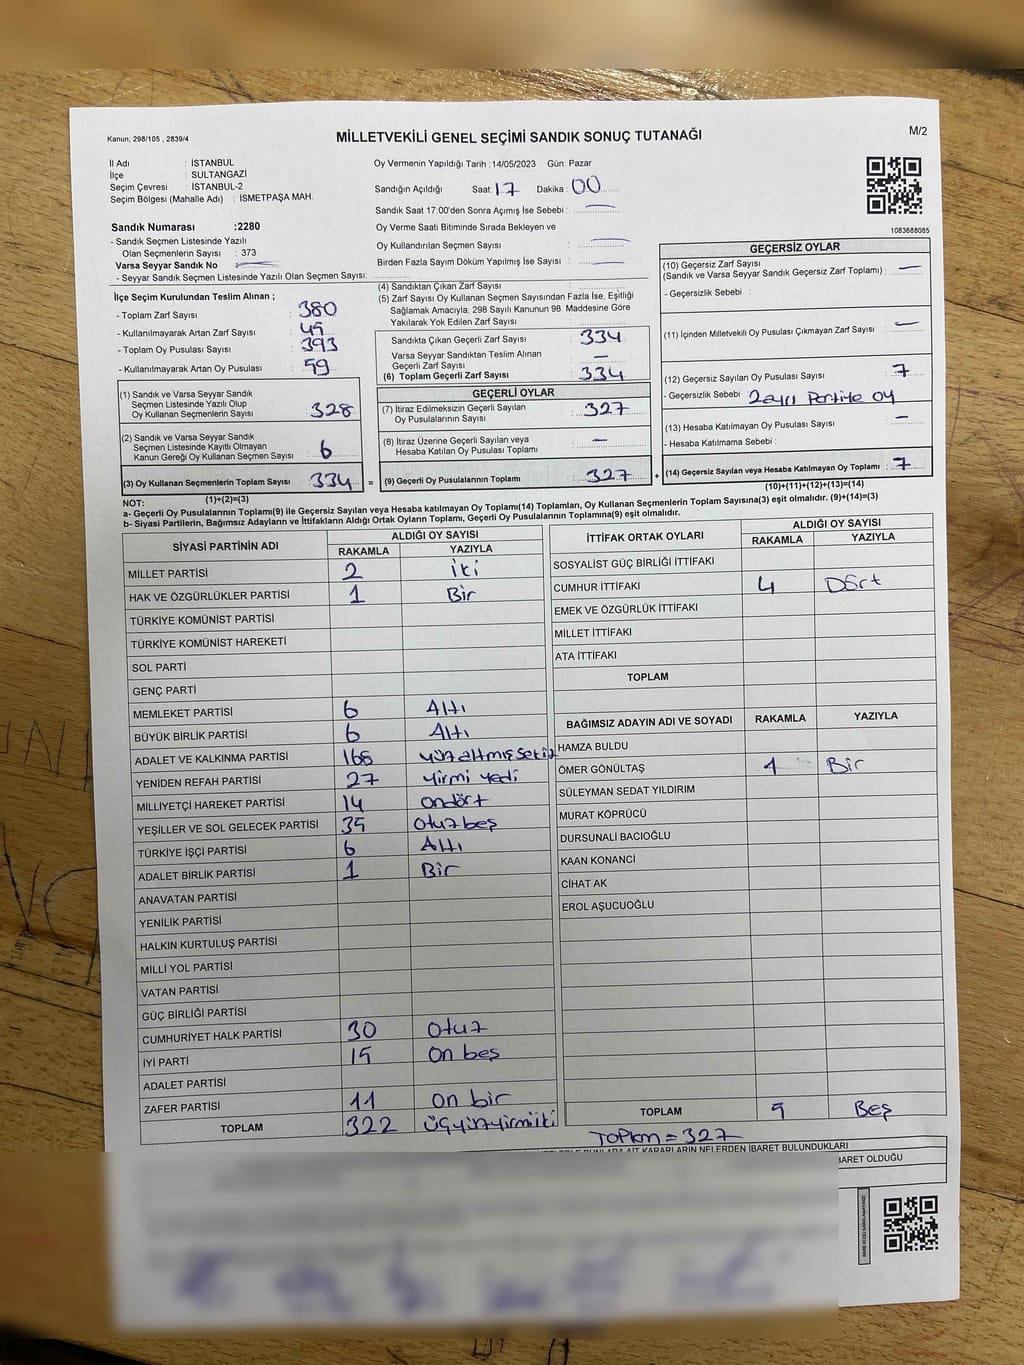 Kanun; 298/105 , 2839/4
MİLLETVEKİLİ GENEL SEÇİMİ SANDIK SONUÇ TUTANAĞI
M/2
İl Adı : İSTANBUL
İlçe : SULTANGAZİ
Seçim Çevresi : İSTANBUL-2
Seçim Bölgesi (Mahalle Adı) : İSMETPAŞA MAH.
Oy Vermenin Yapıldığı Tarih :14/05/2023 Gün: Pazar
Sandığın Açıldığı Saat: 17 Dakika : 00
Sandık Saat 17:00'den Sonra Açımış İse Sebebi : —
Oy Verme Saati Bitiminde Sırada Bekleyen ve
Oy Kullandırılan Seçmen Sayısı : —
Birden Fazla Sayım Döküm Yapılmış İse Sayısı : —
1083688085
Sandık Numarası :2280
- Sandık Seçmen Listesinde Yazılı
Olan Seçmenlerin Sayısı : 373
Varsa Seyyar Sandık No —
- Seyyar Sandık Seçmen Listesinde Yazılı Olan Seçmen Sayısı:
İlçe Seçim Kurulundan Teslim Alınan ;
- Toplam Zarf Sayısı : 380
- Kullanılmayarak Artan Zarf Sayısı : 45
- Toplam Oy Pusulası Sayısı : 393
- Kullanılmayarak Artan Oy Pusulası : 59
(1) Sandık ve Varsa Seyyar Sandık
Seçmen Listesinde Yazılı Olup
Oy Kullanan Seçmenlerin Sayısı : 328
(2) Sandık ve Varsa Seyyar Sandık
Seçmen Listesinde Kayıtlı Olmayan
Kanun Gereği Oy Kullanan Seçmen Sayısı : 6
(3) Oy Kullanan Seçmenlerin Toplam Sayısı : 334
(1)+(2)=(3)
(4) Sandıktan Çıkan Zarf Sayısı :
(5) Zarf Sayısı Oy Kullanan Seçmen Sayısından Fazla İse, Eşitliği
Sağlamak Amacıyla, 298 Sayılı Kanunun 98. Maddesine Göre
Yakılarak Yok Edilen Zarf Sayısı :
Sandıkta Çıkan Geçerli Zarf Sayısı : 334
Varsa Seyyar Sandıktan Teslim Alınan
Geçerli Zarf Sayısı : —
(6) Toplam Geçerli Zarf Sayısı : 334
GEÇERLİ OYLAR
(7) İtiraz Edilmeksizin Geçerli Sayılan
Oy Pusulalarının Sayısı : 327
(8) İtiraz Üzerine Geçerli Sayılan veya
Hesaba Katılan Oy Pusulası Toplamı : —
= (9) Geçerli Oy Pusulalarının Toplamı : 327 +
GEÇERSİZ OYLAR
(10) Geçersiz Zarf Sayısı
(Sandık ve Varsa Seyyar Sandık Geçersiz Zarf Toplamı) : —
- Geçersizlik Sebebi :
(11) İçinden Milletvekili Oy Pusulası Çıkmayan Zarf Sayısı : —
(12) Geçersiz Sayılan Oy Pusulası Sayısı : 7
- Geçersizlik Sebebi : 2 ayrı Partiye oy
(13) Hesaba Katılmayan Oy Pusulası Sayısı : —
- Hesaba Katılmama Sebebi :
(14) Geçersiz Sayılan veya Hesaba Katılmayan Oy Toplamı : 7
(10)+(11)+(12)+(13)=(14)
NOT:
a- Geçerli Oy Pusulaları Toplamı(9) ile Geçersiz Sayılan veya Hesaba katılmayan Oy Toplamı(14) Toplamları, Oy Kullanan Seçmenlerin Toplam Sayısına(3) eşit olmalıdır. (9)+(14)=(3)
b- Siyasi Partilerin, Bağımsız Adayların ve İttifakların Aldığı Ortak Oyların Toplamı, Geçerli Oy Pusulalarının Toplamına(9) eşit olmalıdır.
SİYASİ PARTİNİN ADI ALDIĞI OY SAYISI
RAKAMLA YAZIYLA
MİLLET PARTİSİ 2 iki
HAK VE ÖZGÜRLÜKLER PARTİSİ 1 Bir
TÜRKİYE KOMÜNİST PARTİSİ
TÜRKİYE KOMÜNİST HAREKETİ
SOL PARTİ
GENÇ PARTİ
MEMLEKET PARTİSİ 6 Altı
BÜYÜK BİRLİK PARTİSİ 6 Altı
ADALET VE KALKINMA PARTİSİ 168 yüzaltmışsekiz
YENİDEN REFAH PARTİSİ 27 yirmi yedi
MİLLİYETÇİ HAREKET PARTİSİ 14 ondört
YEŞİLLER VE SOL GELECEK PARTİSİ 35 otuzbeş
TÜRKİYE İŞÇİ PARTİSİ 6 Altı
ADALET BİRLİK PARTİSİ 1 Bir
ANAVATAN PARTİSİ
YENİLİK PARTİSİ
HALKIN KURTULUŞ PARTİSİ
MİLLİ YOL PARTİSİ
VATAN PARTİSİ
GÜÇ BİRLİĞİ PARTİSİ
CUMHURİYET HALK PARTİSİ 30 otuz
İYİ PARTİ 15 on beş
ADALET PARTİSİ
ZAFER PARTİSİ 11 on bir
TOPLAM 322 üçyüzyirmiiki
İTTİFAK ORTAK OYLARI ALDIĞI OY SAYISI
RAKAMLA YAZIYLA
SOSYALİST GÜÇ BİRLİĞİ İTTİFAKI
CUMHUR İTTİFAKI 4 Dört
EMEK VE ÖZGÜRLÜK İTTİFAKI
MİLLET İTTİFAKI
ATA İTTİFAKI
TOPLAM
BAĞIMSIZ ADAYIN ADI VE SOYADI RAKAMLA YAZIYLA
HAMZA BULDU
ÖMER GÖNÜLTAŞ 1 Bir
SÜLEYMAN SEDAT YILDIRIM
MURAT KÖPRÜCÜ
DURSUNALİ BACIOĞLU
KAAN KONANCİ
CİHAT AK
EROL AŞUCUOĞLU
TOPLAM 5 Beş
TOPlam = 327
KARARLARIN NELERDEN İBARET BULUNDUKLARI
BARET OLDUĞU